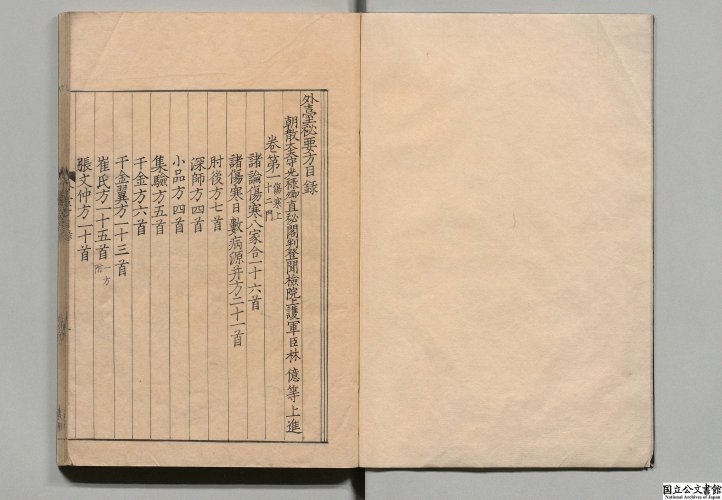 外臺秘要方目錄
朝散大夫守光祿卿直秘閣判登聞檢院上護軍臣林 億等上進
卷第一 傷寒上 十二門
諸論傷寒八家合一十六首
諸傷寒日數病源并方二十一首
肘後方七首
深師方四首
小品方四首
集驗方五首
千金方六首
千金翼方一十三首
崔氏方一十五首 一方附
張文仲方一十首
国立公文書館
National Archives of Japan